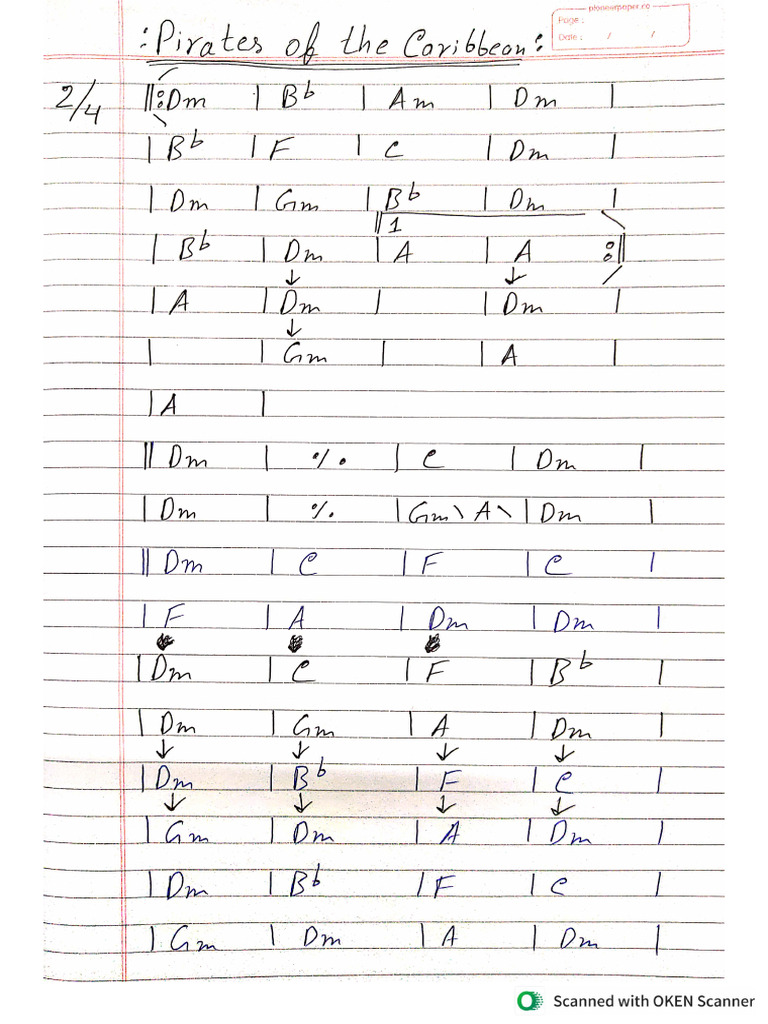 pioneerpaper.co
:Pirates of the Caribbean:
Page :
Date : / /
2/4 ||: Dm | Bb | Am | Dm |
| Bb | F | C | Dm |
| Dm | Gm | Bb | Dm |
|| 1
| Bb | Dm | A | A :||
↓ ↓
| A | Dm | | Dm |
↓
| | Gm | | A |
| A |
|| Dm | % | C | Dm |
| Dm | % | Gm \ A \ | Dm |
|| Dm | C | F | C |
| F | A | Dm | Dm |
| Dm | C | F | Bb |
| Dm | Gm | A | Dm |
↓ ↓ ↓ ↓
| Dm | Bb | F | C |
↓ ↓ ↓ ↓
| Gm | Dm | A | Dm |
| Dm | Bb | F | C |
| Gm | Dm | A | Dm |
Scanned with OKEN Scanner